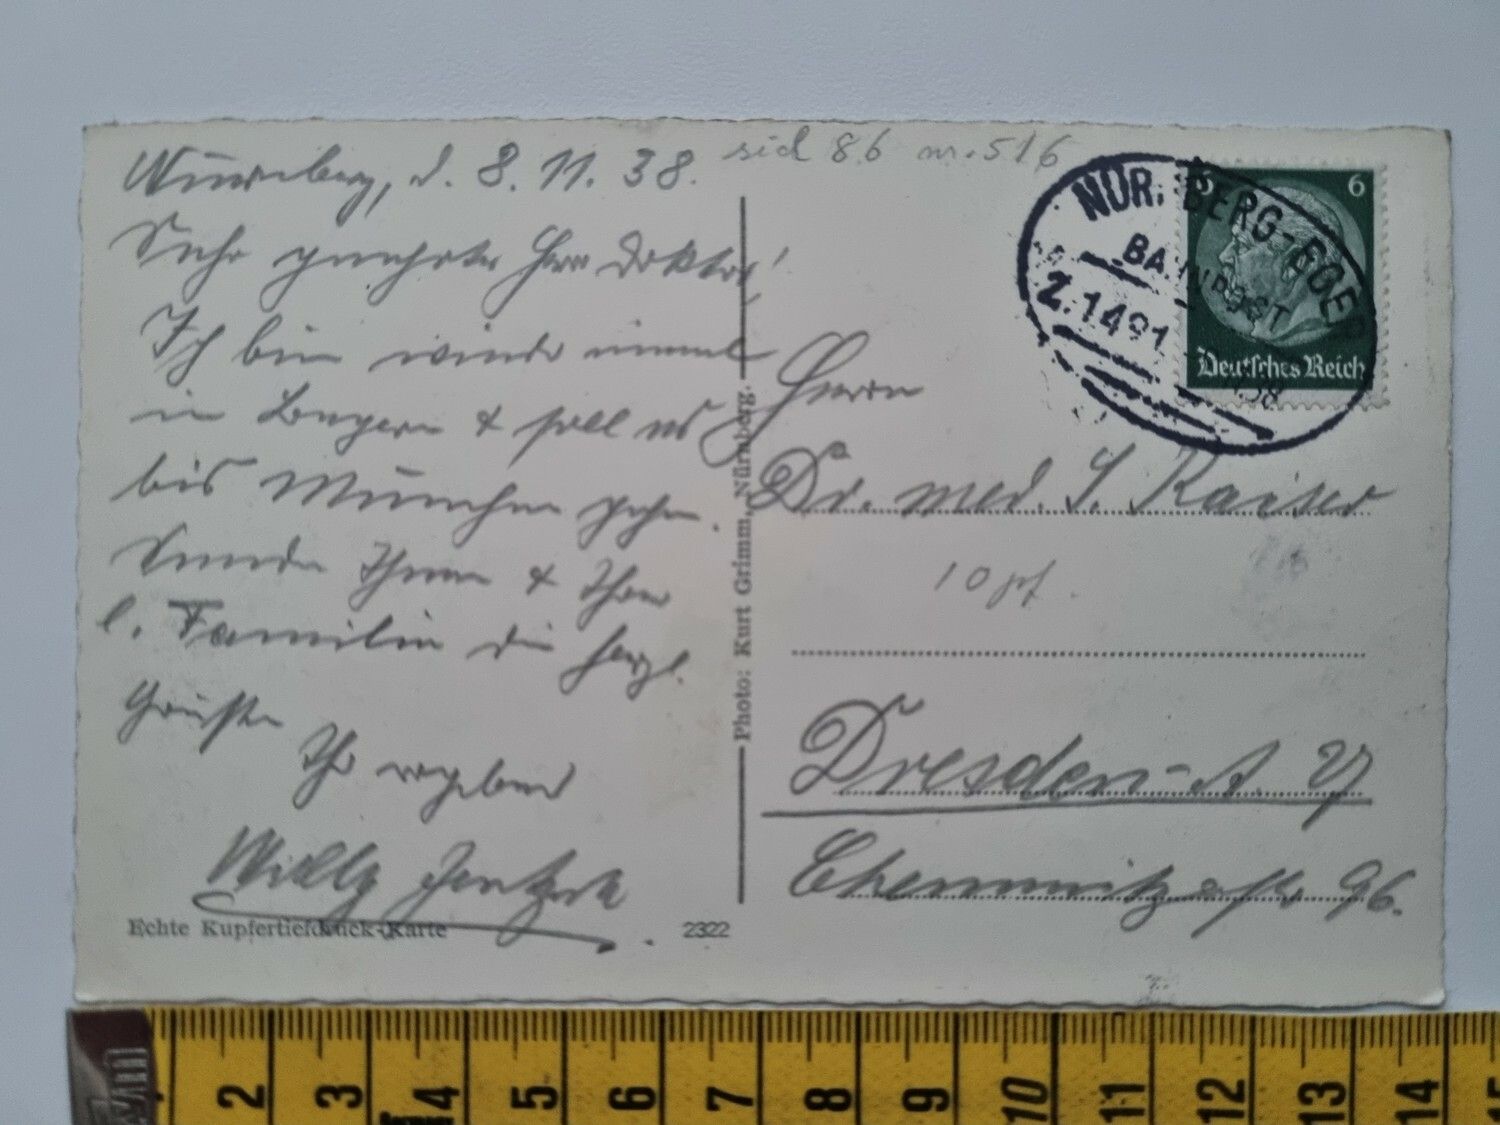 Nürnberg, d. 8. 11. 38.
sid 86 nr. 516
Sehr geehrter Herr Doktor!
Ich bin wieder einmal
in Bayern & soll es
bis München gehen.
Sende Ihnen & Ihrer
l. Familie die herzl.
Grüsse
Ihr ergebener
Willy
Echte Kupfertiefdruck-Karte
2322
Photo: Kurt Grimm, Nürnberg.
NÜRNBERG-EGER
BAHNPOST
Z. 1491
11.38
6
6
Deutsches Reich
Herrn
Dr. med. J. Kaiser
10 pf.
Dresden-A. 27
Chemnitzerstr 96.
2
3
4
5
6
7
8
9
10
11
12
13
14
15